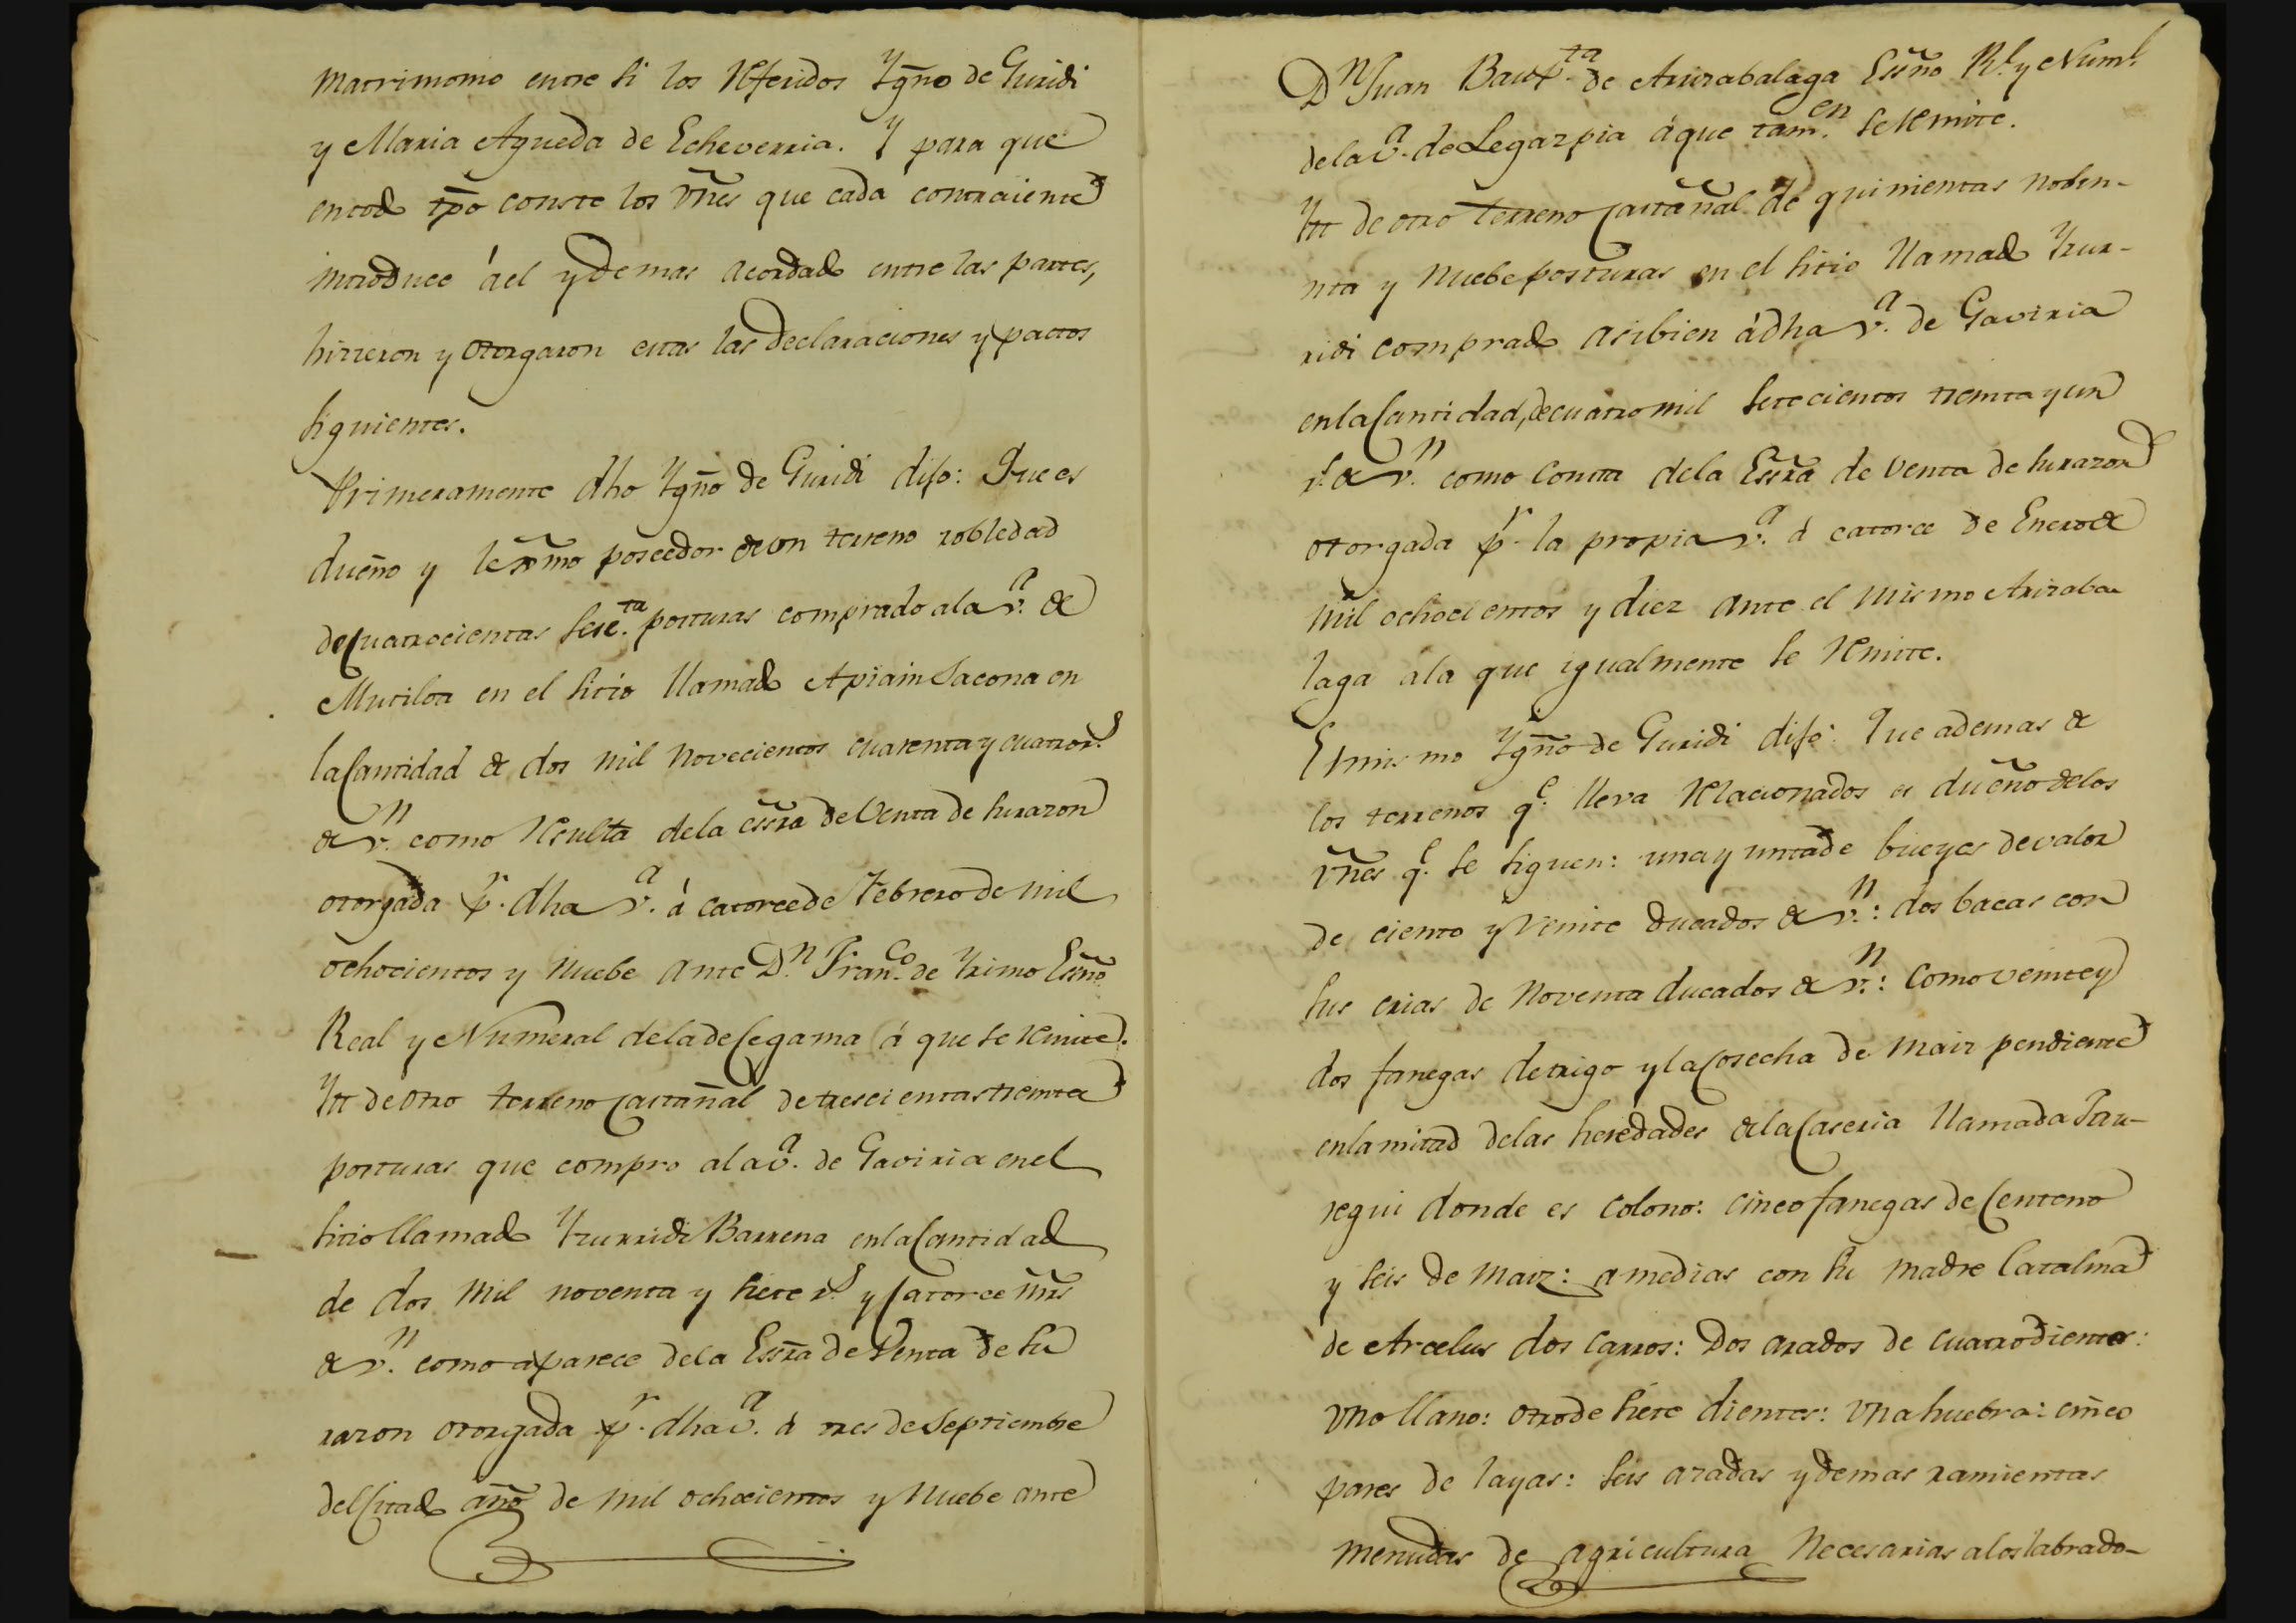 Matrimonio entre si los Referidos Ygño de Guridi
y Maria Agueda de Echeverria. Y para que
en todo tpo conste los Vñes que cada contraiente
introduce á el y demas acordado entre las partes,
hizieron y otorgaron estas las declaraciones y pactos
siguientes.
Primeramente dho Ygño de Guridi dijo: Que es
dueño y lexmo poseedor de un terreno robledad
de Cuatrocientas sese.ta posturas comprado a la v.a de
Mutiloa en el sitio llamado Apiain Sacona en
la Cantidad de dos mil novecientos cuarenta y cuatro r.s
de v.n como Resulta de la essra de Venta de su razon
otorgada p.r dha v.a á catorce de Febrero de mil
ochocientos y Nuebe ante D.n Fran.co de Yrimo Essño
Real y Numeral de la de Cegama á que se Remite.
Ytt de otro terreno Castañal de trescientas treinta
posturas que compro a la v.a de Gaviria en el
sitio llamado Yzurridi Barrena en la Cantidad
de dos mil noventa y siete r.s y Catorce mrs
de v.n como aparece de la Essra de Venta de su
razon otorgada p.r dha v.a á tres de Septiembre
del Citado año de mil ochocientos y Nuebe ante
D.n Juan Baup.ta de Arizabalaga Essño R.l y Num.l
de la v.a de Legazpia á que tam.en se Remite.
Ytt de otro terreno Castañal de quinientas noben-
nta y Nuebe posturas en el sitio llamado Yzur-
ridi comprado asibien á dha v.a de Gaviria
en la Cantidad, de cuatro mil setecientos treinta y un
r.s de v.n como consta de la Essra de venta de su razon
otorgada p.r la propia v.a á catorce de Enero de
mil ochocientos y diez ante el mismo Arizaba-
laga a la que igualmente se Remite.
El mismo Ygño de Guridi dijo: Que ademas de
los terrenos q.e lleva Relacionados es dueño de los
Vñes q.e se siguen: una yunta de bueyes de valor
de ciento y Veinte ducados de v.n: dos bacas con
sus crias de Noventa ducados de v.n: Como veinte y
dos fanegas de trigo y la Cosecha de maiz pendiente
en la mitad de las heredades de la Caseria llamada Jau-
regui donde es colono: cinco fanegas de Centeno
y seis de maiz: a medias con su madre Catalina
de Arcelus dos carros: Dos arados de cuatro dientes:
Uno llano: otro de siete dientes: Una huebra: cinco
pares de layas: seis azadas y demas ramientas
menudas de agricultura Necesarias a los labrado-